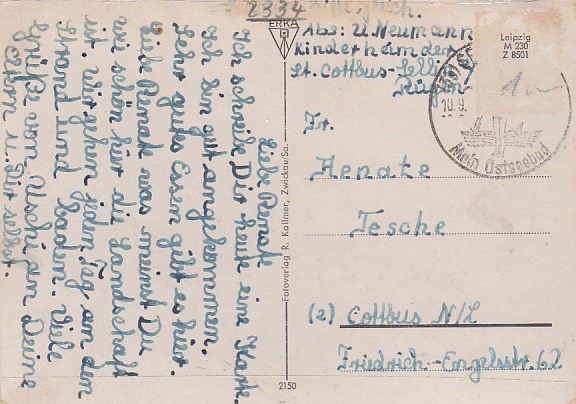 2334
Liebe Renate
Ich schreibe Dir heute eine Karte.
Ich bin gut angekommen.
Sehr gutes Essen gibt es hier.
Liebe Renate was meinst Du
wie schön hier die Landschaft
ist. wir gehen jeden Tag an den
Strand und baden. Viele
Grüße von Uschi an Deine
Eltern u. Dir selbst.
ERKA
Fotoverlag R. Kallmer, Zwickau/Sa.
2150
Abs: U. Neumann
Kinderheim der
St. Cottbus-Sellin
Rügen
Leipzig
M 230
Z 8501
10.9.
Mein Ostseebad
Fr.
Renate
Tesche
(2) Cottbus N/L
Friedrich-Engelsstr. 62